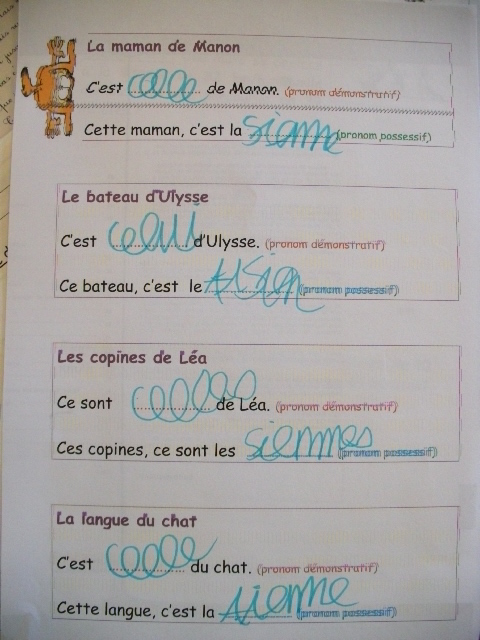 La maman de Manon
C'est celle de Manon. (pronom démonstratif)
Cette maman, c'est la sienne (pronom possessif)
Le bateau d'Ulysse
C'est celui d'Ulysse. (pronom démonstratif)
Ce bateau, c'est le sien (pronom possessif)
Les copines de Léa
Ce sont celles de Léa. (pronom démonstratif)
Ces copines, ce sont les siennes (pronom possessif)
La langue du chat
C'est celle du chat. (pronom démonstratif)
Cette langue, c'est la sienne (pronom possessif)